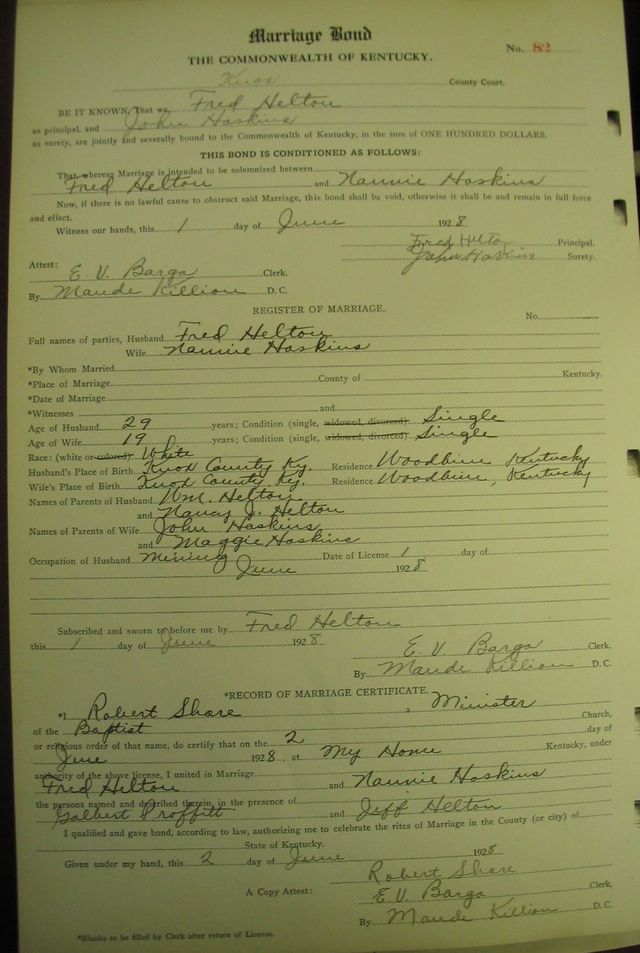 Marriage Bond
No. 82
THE COMMONWEALTH OF KENTUCKY.
Knox County Court.
BE IT KNOWN, That we, Fred Helton
as principal, and John Haskins
as surety, are jointly and severally bound to the Commonwealth of Kentucky, in the sum of ONE HUNDRED DOLLARS.
THIS BOND IS CONDITIONED AS FOLLOWS:
That, whereas Marriage is intended to be solemnized between
Fred Helton and Nannie Haskins
Now, if there is no lawful cause to obstruct said Marriage, this bond shall be void, otherwise it shall be and remain in full force
and effect.
Witness our hands, this 1 day of June 1928
Fred Helto Principal.
John Haskins Surety.
Attest:
E. V. Barga Clerk,
By Maude Killion D. C.
REGISTER OF MARRIAGE.
No.
Full names of parties, Husband Fred Helton
Wife Nannie Haskins
*By Whom Married
*Place of Marriage County of Kentucky.
*Date of Marriage
*Witnesses and
Age of Husband 29 years; Condition (single, widowed, divorced) Single
Age of Wife 19 years; Condition (single, widowed, divorced) Single
Race: (white or colored) White
Husband's Place of Birth Knox County Ky. Residence Woodbine Kentucky
Wife's Place of Birth Knox County Ky. Residence Woodbine, Kentucky
Names of Parents of Husband Wm. Helton
and Nancy J. Helton
Names of Parents of Wife John Haskins
and Maggie Haskins
Occupation of Husband Mining Date of License 1 day of
June 1928
Subscribed and sworn to before me by Fred Helton
this 1 day of June 1928
E. V. Barga Clerk,
By Maude Killion D. C.
*RECORD OF MARRIAGE CERTIFICATE.
*I Robert Share a Minister
of the Baptist Church,
or religious order of that name, do certify that on the 2 day of
June 1928, at My Home Kentucky, under
authority of the above license, I united in Marriage
Fred Helton and Nannie Haskins
the persons named and described therein, in the presence of
Galbert Proffitt and Jeff Helton
I qualified and gave bond, according to law, authorizing me to celebrate the rites of Marriage in the County (or city) of
State of Kentucky.
Given under my hand, this 2 day of June 1928
Robert Share
A Copy Attest: E. V. Barga Clerk,
By Maude Killion D. C.
*Blanks to be filled by Clerk after return of License.